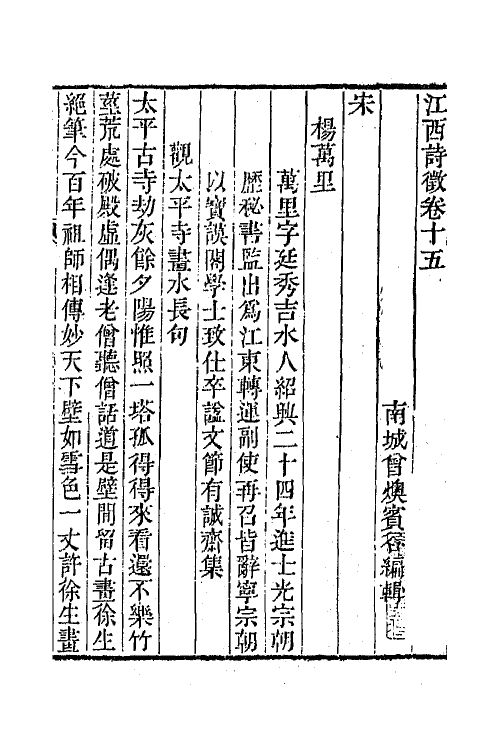 江西詩徵卷十五
南城曾燠賓谷編輯
宋
楊萬里
萬里字廷秀吉水人紹興二十四年進士光宗朝
歷秘書監出爲江東轉運副使再召皆辭寧宗朝
以寶謨閣學士致仕卒謚文節有誠齋集
觀太平寺畫水長句
太平古寺劫灰餘夕陽惟照一塔孤得得來看還不樂竹
莖荒處破殿虛偶逢老僧聽僧話道是壁間留古畫徐生
絕筆今百年祖師相傳妙天下壁如雪色一丈許徐生畫